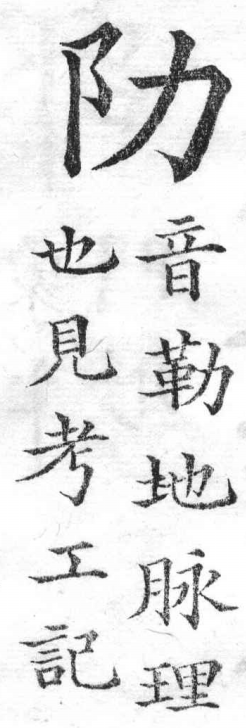 阞
音勒地脉理
也見考工記